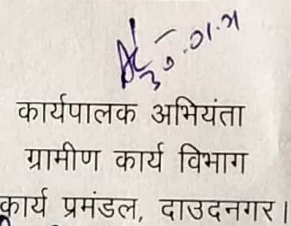 30.01.21
कार्यपालक अभियंता
ग्रामीण कार्य विभाग
कार्य प्रमंडल, दाउदनगर।